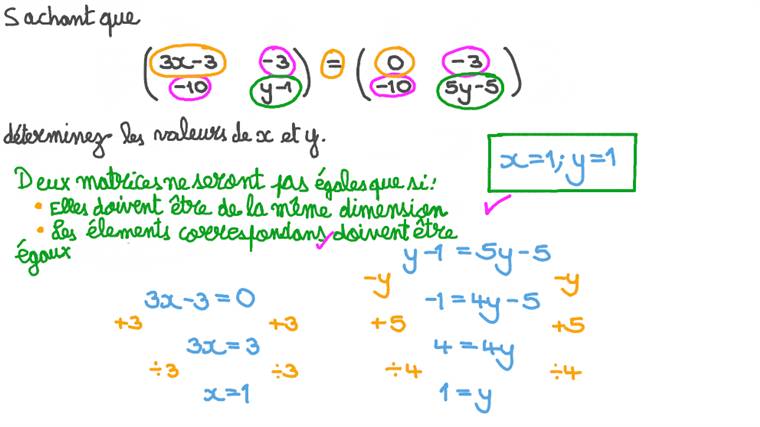 Sachant que
(3x-3 -3) = (0 -3)
(-10 y-1) (-10 5y-5)
déterminez les valeurs de x et y.
x=1; y=1
Deux matrices ne seront pas égales que si:
• Elles doivent être de la même dimension ✓
• Les élements correspondans doivent être ✓
égaux
3x-3=0
+3 +3
3x=3
÷3 ÷3
x=1
y-1=5y-5
-y -y
-1=4y-5
+5 +5
4=4y
÷4 ÷4
1=y